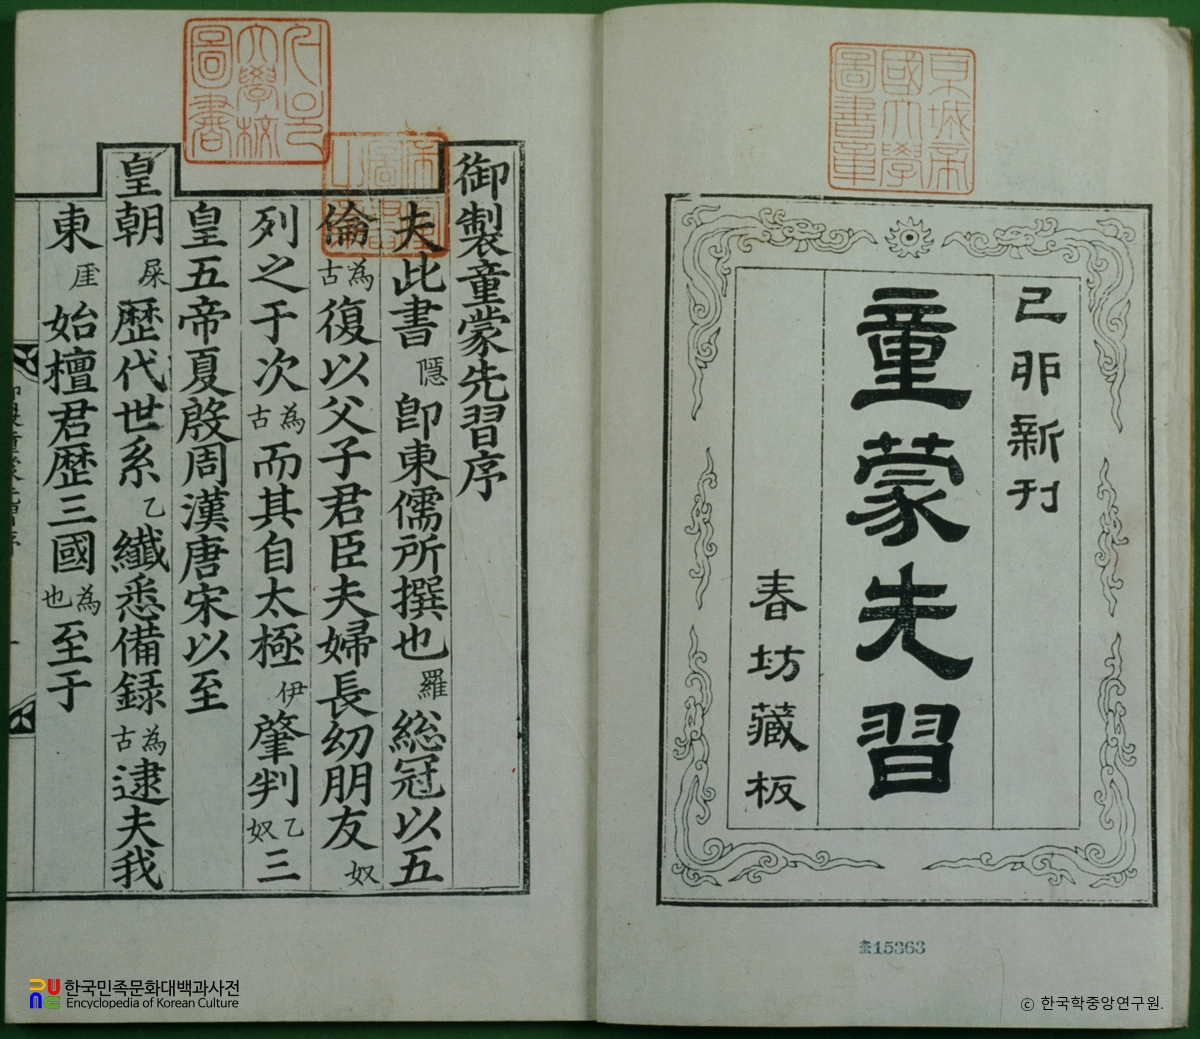 京城帝
國大學
圖書章
己卯新刊
童蒙先習
春坊藏板
奎15363
서울
大學校
圖書
御製童蒙先習序
夫此書隱卽東儒所撰也羅総冠以五
倫為古復以父子君臣夫婦長幼朋友奴
列之于次為古而其自太極伊肇判乙奴三
皇五帝夏殷周漢唐宋以至
皇朝屎歷代世系乙纖悉備録為古逮夫我
東厓始檀君歷三國為也至于
한국민족문화대백과사전
Encyclopedia of Korean Culture
ⓒ 한국학중앙연구원.